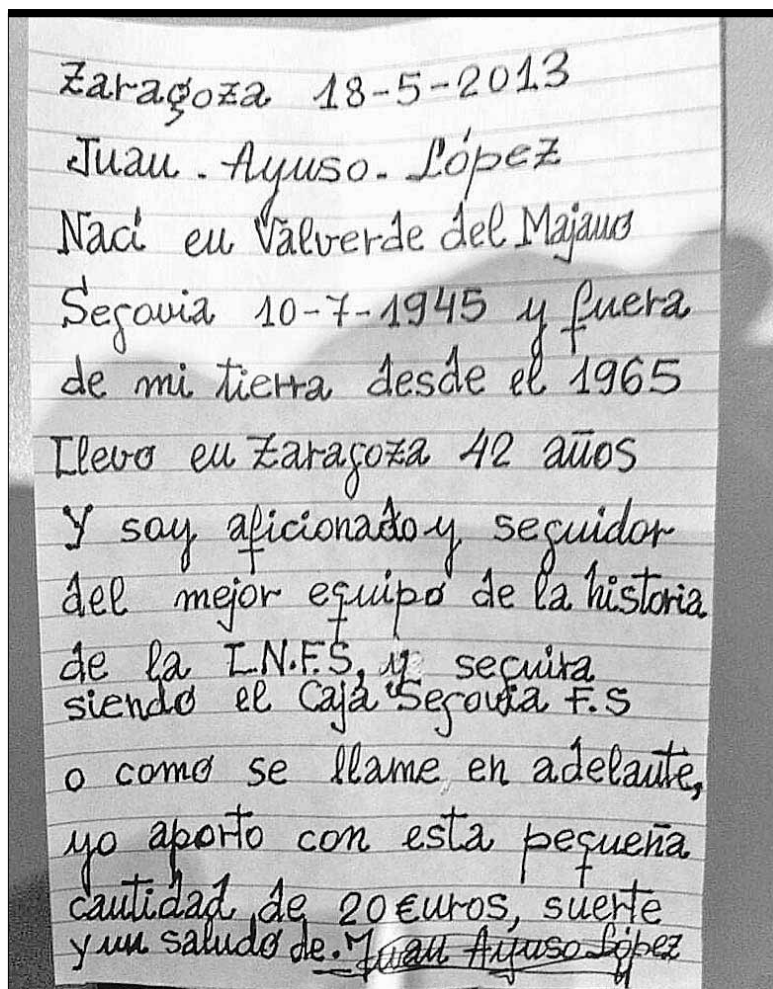 Zaragoza 18-5-2013
Juan. Ayuso. López
Nací en Valverde del Majano
Segovia 10-7-1945 y fuera
de mi tierra desde el 1965
Llevo en Zaragoza 42 años
Y soy aficionado y seguidor
del mejor equipo de la historia
de la L.N.F.S, y seguira
siendo el Caja Segovia F.S
o como se llame en adelante,
yo aporto con esta pequeña
cantidad de 20 €uros, suerte
y un saludo de. Juan Ayuso López